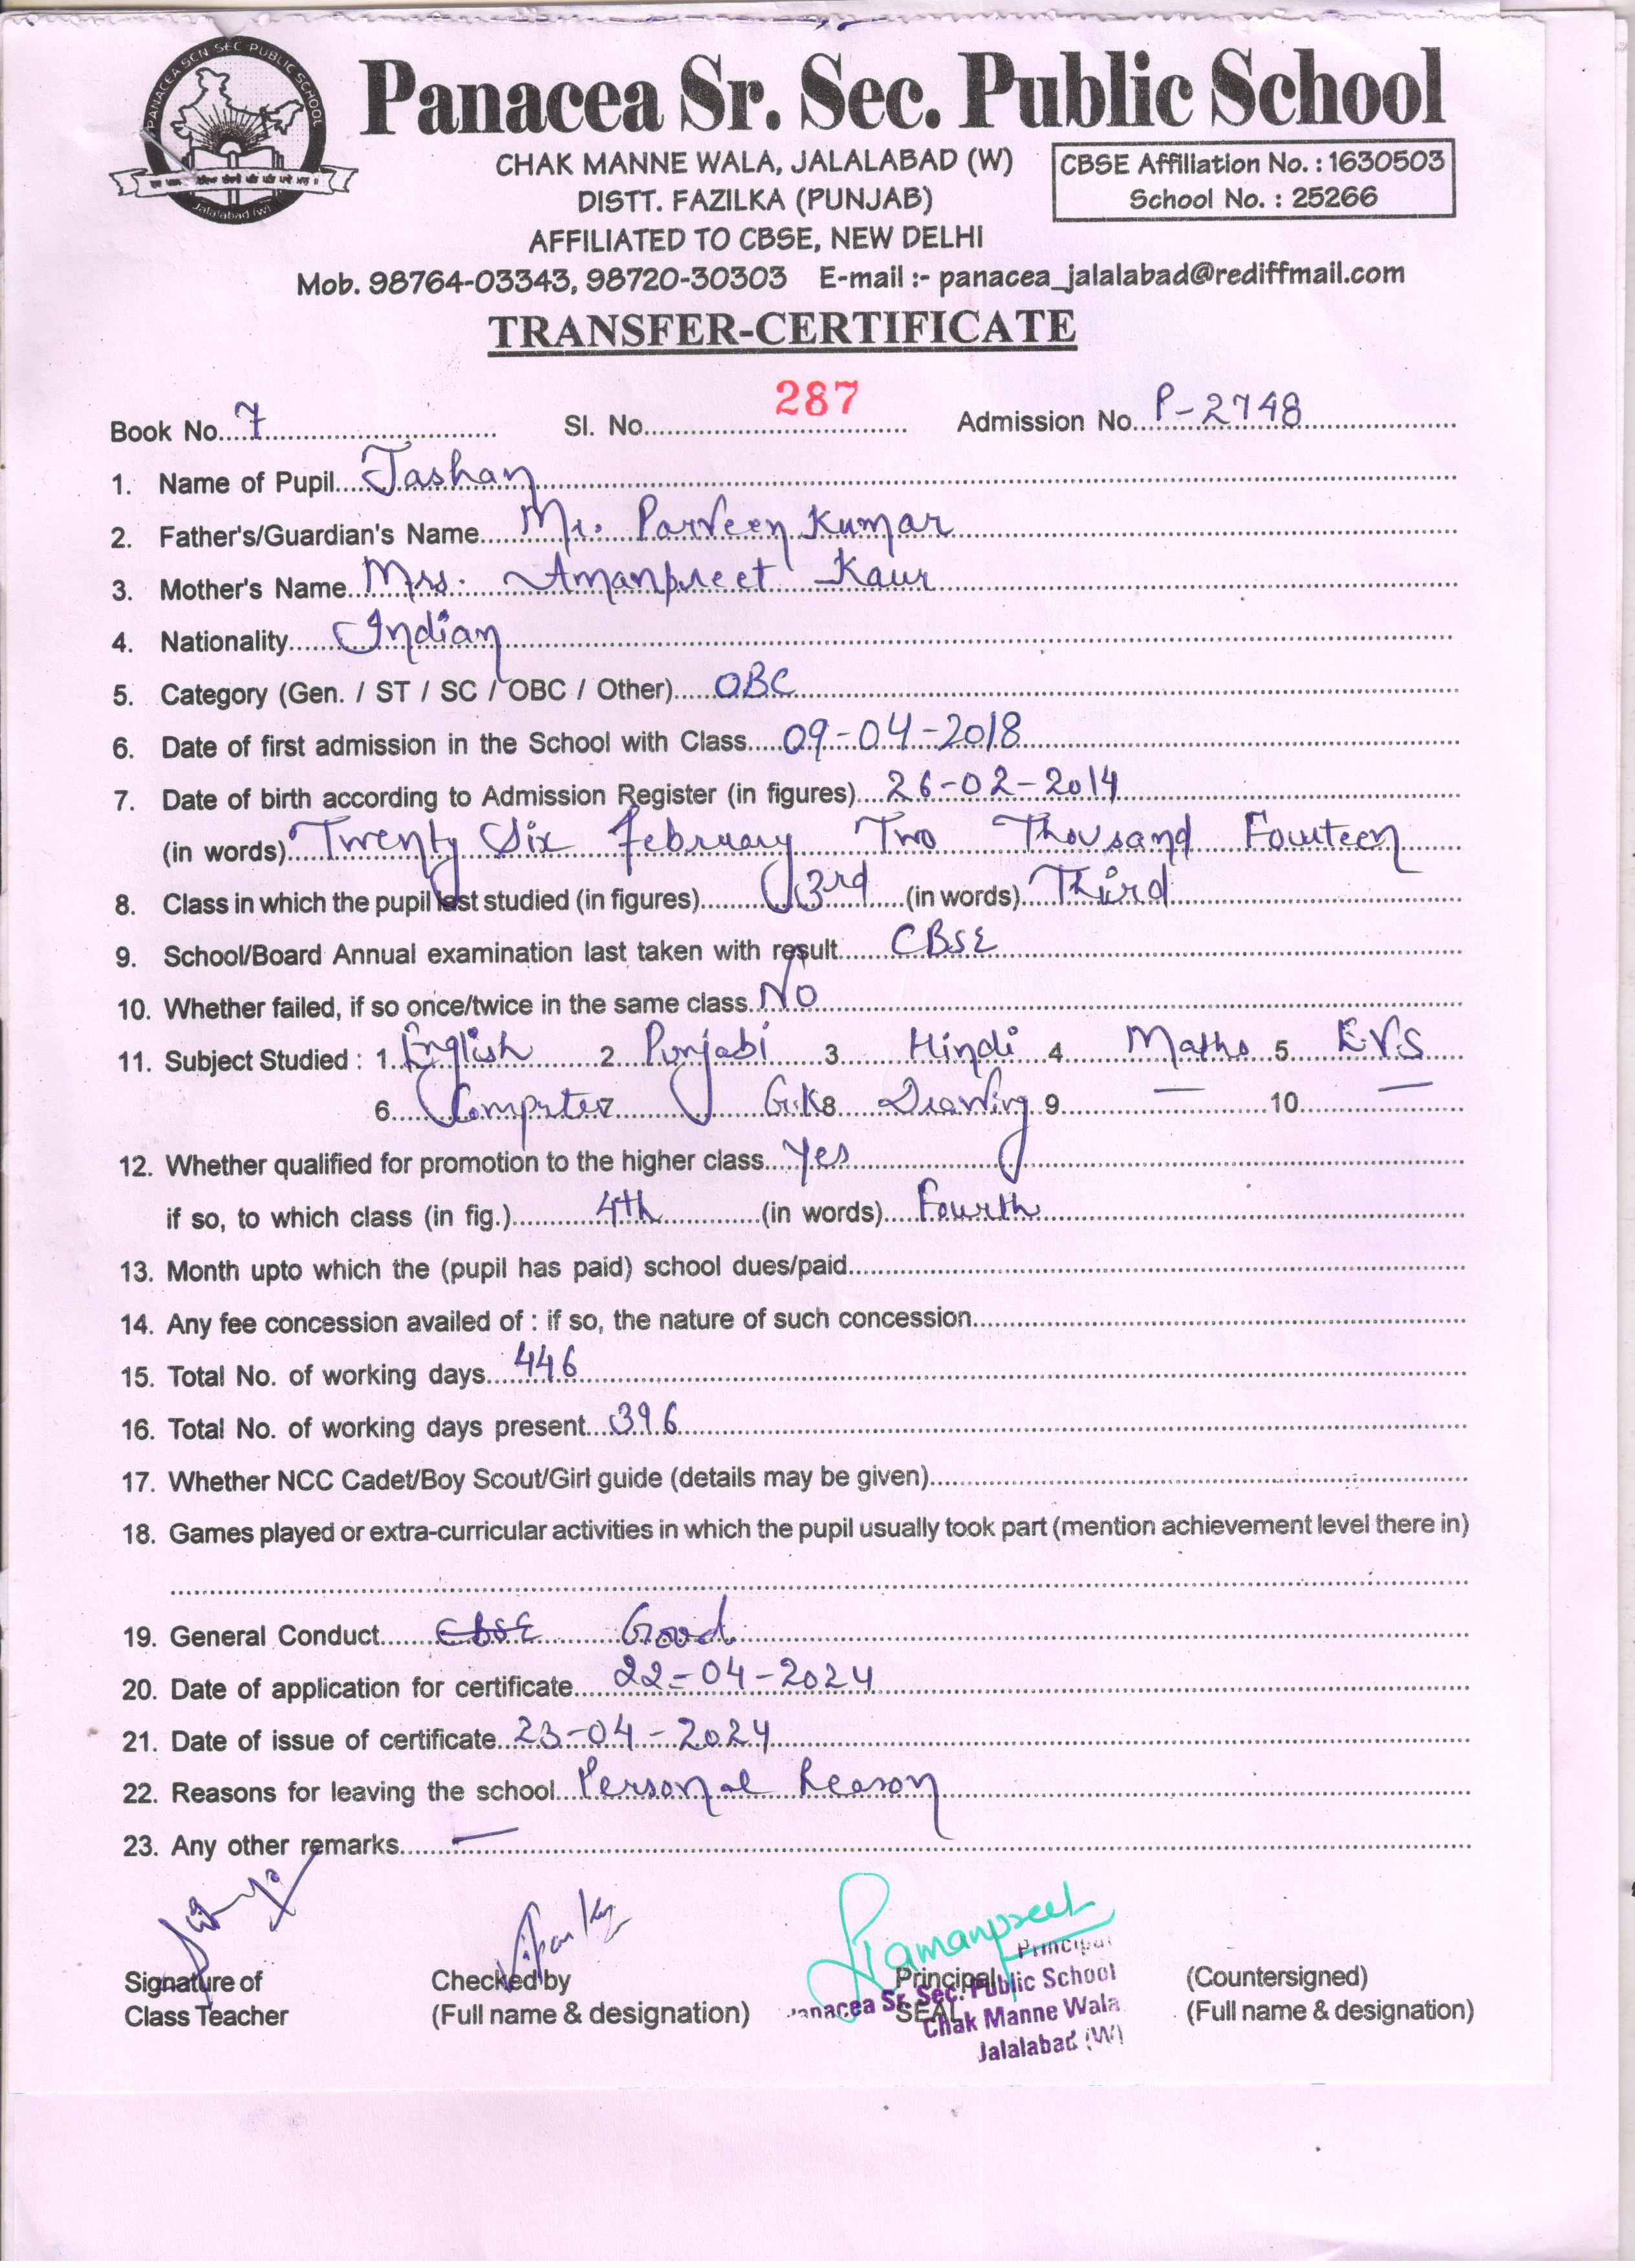 PANACEA SCN SEC PUBLIC SCHOOL
Jalalabad (w)
Panacea Sr. Sec. Public School
CHAK MANNE WALA, JALALABAD (W)
DISTT. FAZILKA (PUNJAB)
AFFILIATED TO CBSE, NEW DELHI
CBSE Affiliation No. : 1630503
School No. : 25266
Mob. 98764-03343, 98720-30303 E-mail :- panacea_jalalabad@rediffmail.com
TRANSFER-CERTIFICATE
Book No. 7 Sl. No. 287 Admission No. P-2748
1. Name of Pupil Jashan
2. Father's/Guardian's Name Mr. Parveen Kumar
3. Mother's Name Mrs. Amanpreet Kaur
4. Nationality Indian
5. Category (Gen. / ST / SC / OBC / Other) OBC
6. Date of first admission in the School with Class 09-04-2018
7. Date of birth according to Admission Register (in figures) 26-02-2014
(in words) Twenty Six February Two Thousand Fourteen
8. Class in which the pupil last studied (in figures) 3rd (in words) Third
9. School/Board Annual examination last taken with result CBSE
10. Whether failed, if so once/twice in the same class NO
11. Subject Studied : 1. English 2 Punjabi 3 Hindi 4 Maths 5 E.V.S
6 Computer 7 G.K 8 Drawing 9 — 10 —
12. Whether qualified for promotion to the higher class Yes
if so, to which class (in fig.) 4th (in words) Fourth
13. Month upto which the (pupil has paid) school dues/paid
14. Any fee concession availed of : if so, the nature of such concession
15. Total No. of working days 446
16. Total No. of working days present 396
17. Whether NCC Cadet/Boy Scout/Girl guide (details may be given)
18. Games played or extra-curricular activities in which the pupil usually took part (mention achievement level there in)
19. General Conduct CBSE Good
20. Date of application for certificate 22-04-2024
21. Date of issue of certificate 23-04-2024
22. Reasons for leaving the school Personal Reason
23. Any other remarks —
Signature of
Class Teacher
Checked by
(Full name & designation)
Principal
SEAL
Principal
Panacea Sr. Sec. Public School
Chak Manne Wala
Jalalabad (W)
(Countersigned)
(Full name & designation)